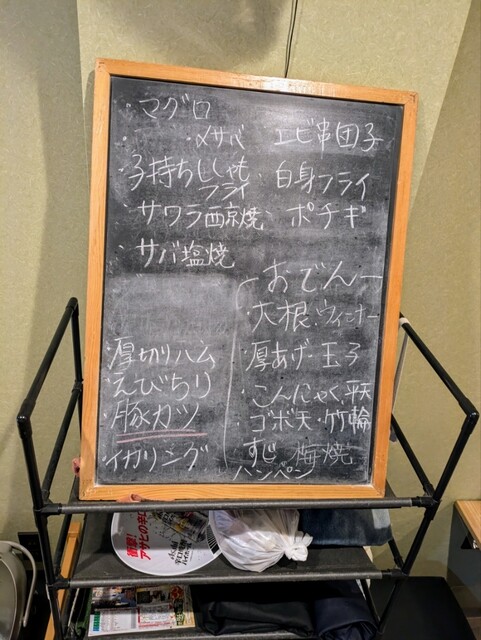 ・マグロ
・メサバ
・子持ちししゃも
フライ
・サワラ西京焼
・サバ塩焼
・厚切りハム
・えびちり
・豚カツ
・イカリング
エビ串団子
・白身フライ
・ポテギ
おでん
・大根・ウィンナー
・厚あげ・玉子
・こんにゃく・平天
・ゴボ天・竹輪
すじ 梅焼
ハンペン
アサヒの辛口